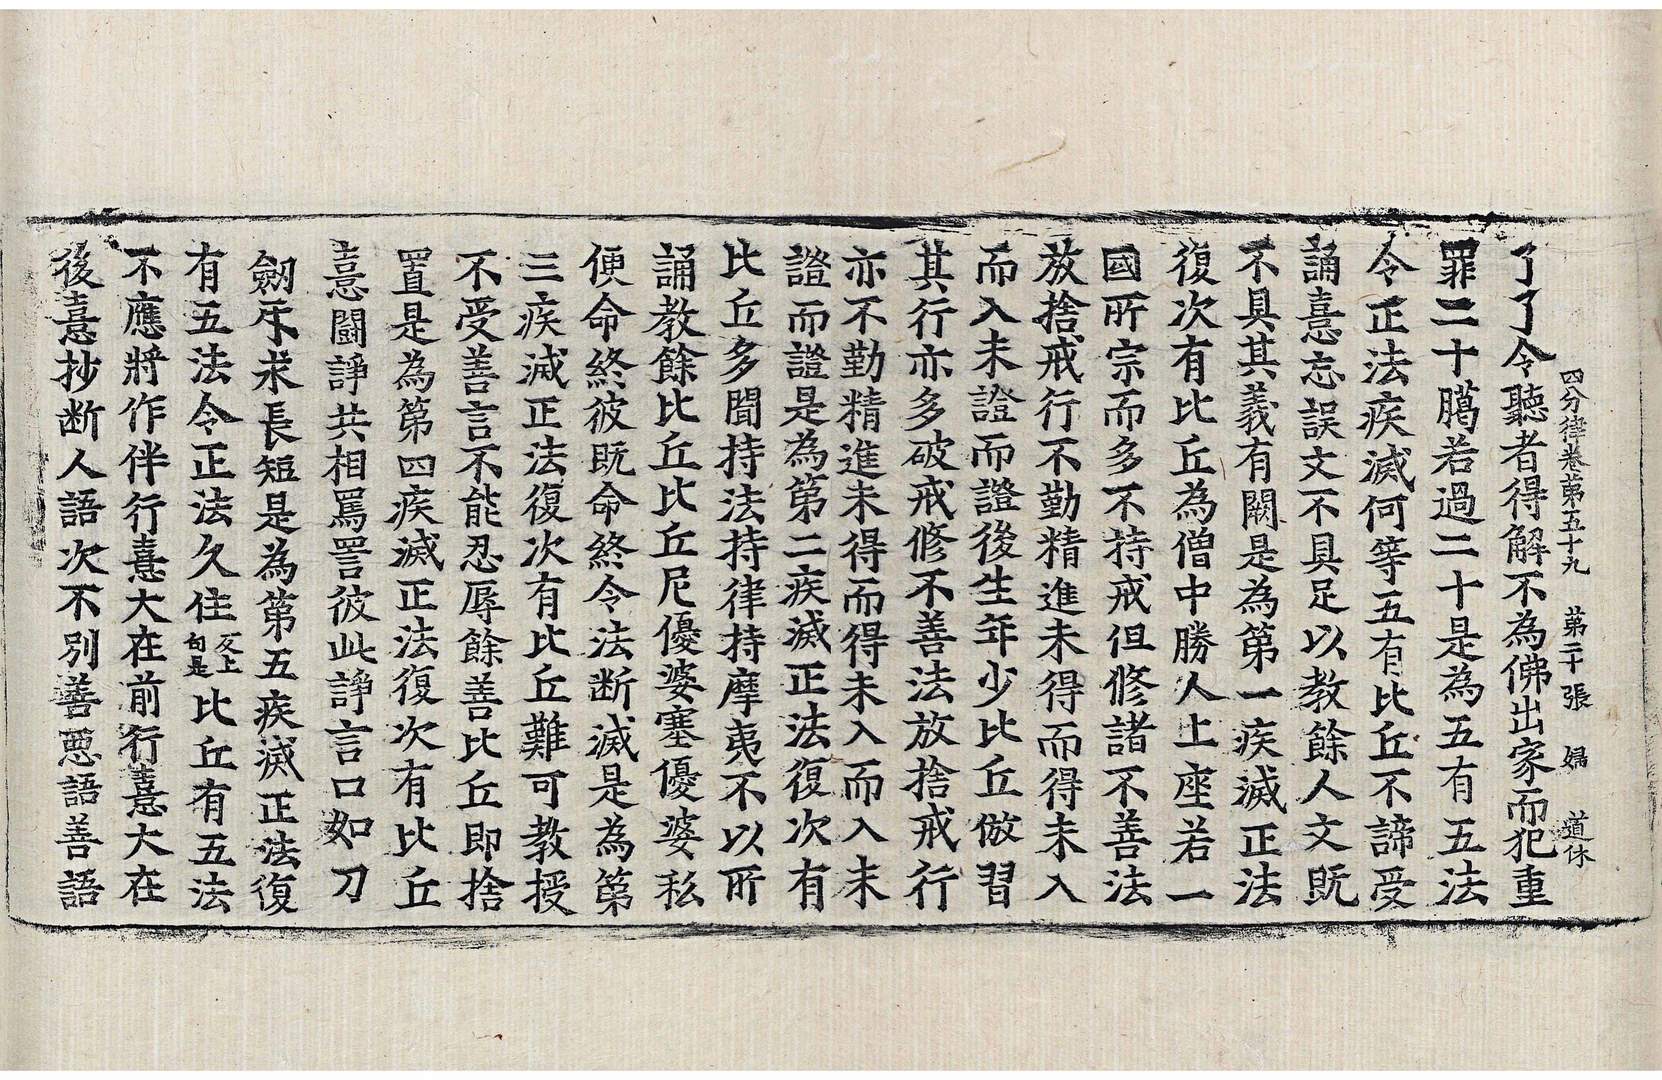 四分律卷第五十九　第二十張　婦　道休
了了令聽者得解不為佛出家而犯重
罪二十臈若過二十是為五有五法
令正法疾滅何等五有比丘不諦受
誦憙忘誤文不具足以教餘人文既
不具其義有闕是為第一疾滅正法
復次有比丘為僧中勝人上座若一
國所宗而多不持戒但修諸不善法
放捨戒行不勤精進未得而得未入
而入未證而證後生年少比丘倣習
其行亦多破戒修不善法放捨戒行
亦不勤精進未得而得未入而入未
證而證是為第二疾滅正法復次有
比丘多聞持法持律持摩夷不以所
誦教餘比丘比丘尼優婆塞優婆私
便命終彼既命終令法断滅是為第
三疾滅正法復次有比丘難可教授
不受善言不能忍辱餘善比丘即捨
置是為第四疾滅正法復次有比丘
憙鬪諍共相罵詈彼此諍言口如刀
劒互求長短是為第五疾滅正法復
有五法令正法久住反上句是比丘有五法
不應將作伴行憙大在前行憙大在
後憙抄断人語次不別善惡語善語